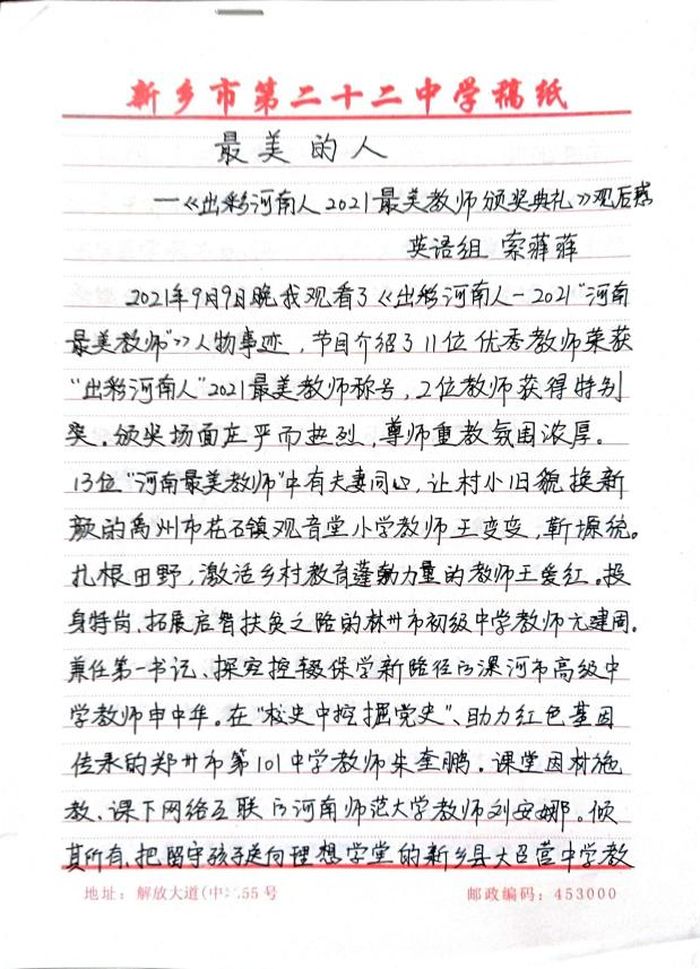 新乡市第二十二中学稿纸
最美的人
—《出彩河南人2021最美教师颁奖典礼》观后感
英语组 索薜薜
2021年9月9日晚我观看了《出彩河南人—2021“河南
最美教师”》人物事迹，节目介绍了11位优秀教师荣获
“出彩河南人”2021最美教师称号，2位教师获得特别
奖。颁奖场面庄严而热烈，尊师重教氛围浓厚。
13位“河南最美教师”中有夫妻同心，让村小旧貌换新
颜的禹州市花石镇观音堂小学教师王变变，靳塬统。
扎根田野，激活乡村教育蓬勃力量的教师王爱红。投
身特岗、拓展启智扶贫之路的林州市初级中学教师尤建周。
兼任第一书记、探究控辍保学新路径的漯河市高级中
学教师申中华。在“校史中挖掘党史”、助力红色基因
传承的郑州市第101中学教师朱奎鹏。课堂因材施
教、课下网络互联的河南师范大学教师刘安娜。倾
其所有、把留守孩子送向理想学堂的新乡县大召营中学教
地址：解放大道(中)55号 邮政编码：453000